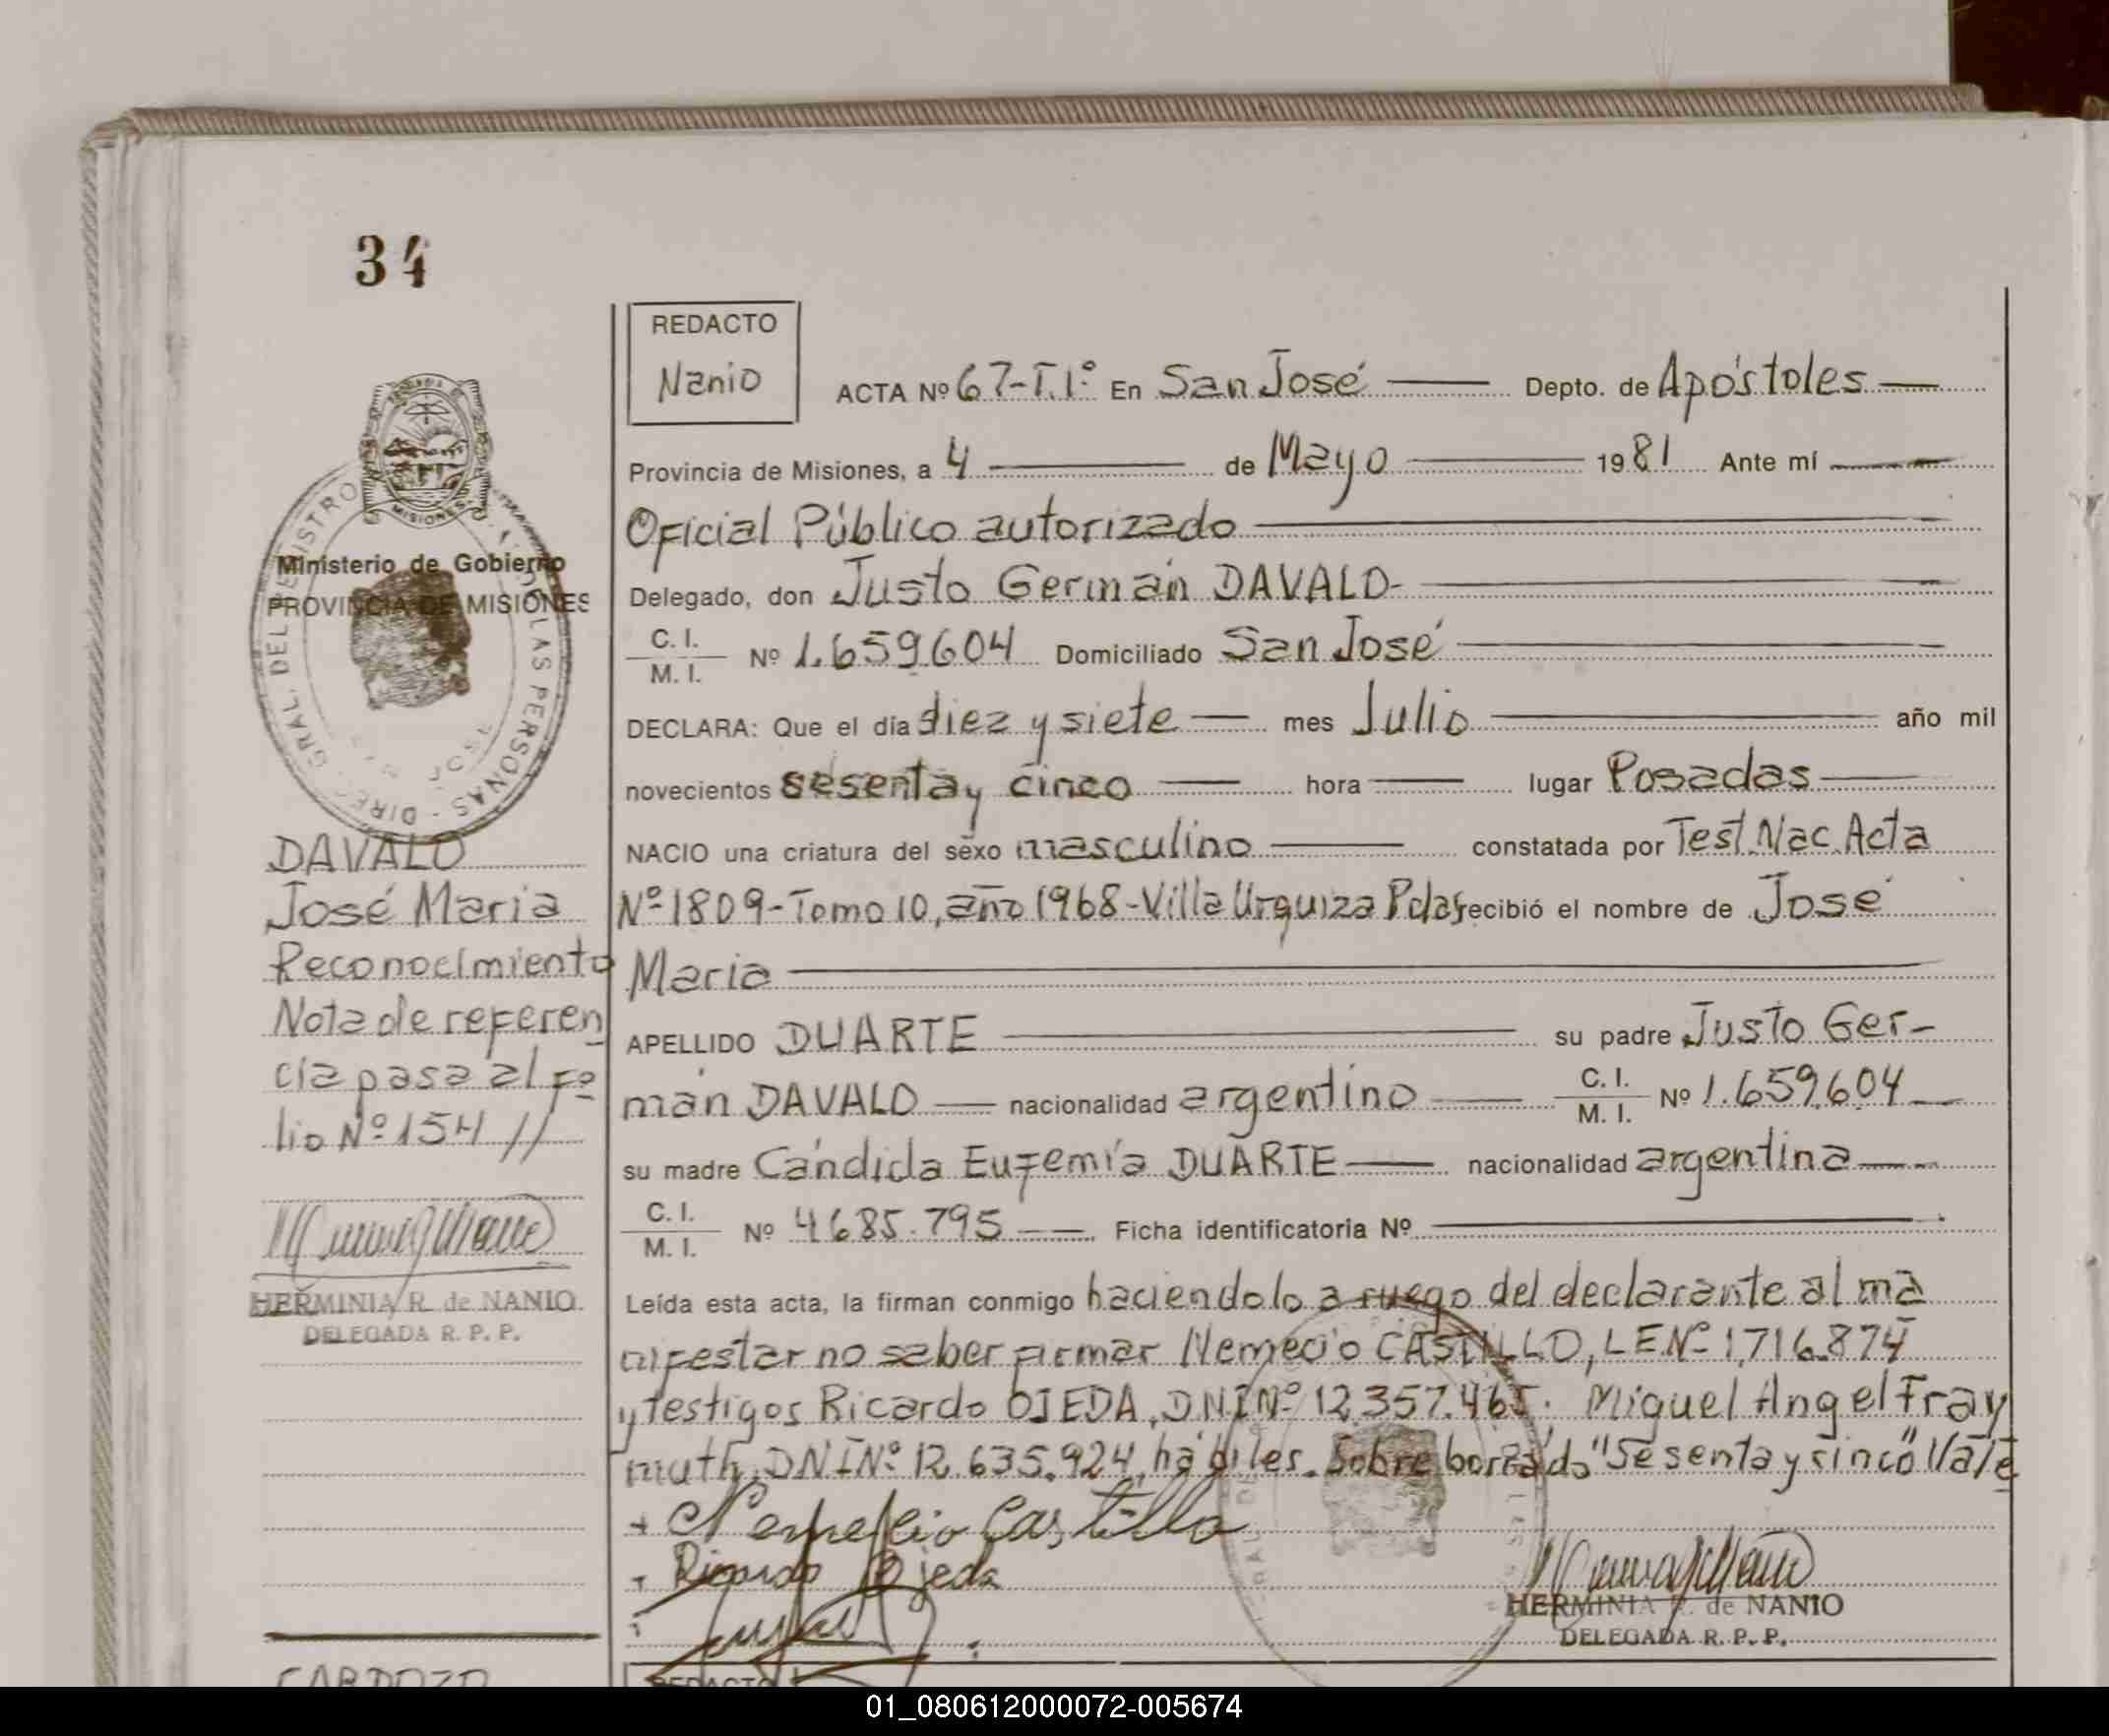 34
REDACTO
Nanio
ACTA Nº 67-T.1º En San José Depto. de Apóstoles
Provincia de Misiones, a 4 de Mayo 1981 Ante mí
Oficial Público autorizado
Delegado, don Justo Germán DAVALO-
C. I.
M. I.
Nº 1.659.604 Domiciliado San José
DECLARA: Que el día diez y siete mes Julio año mil
novecientos sesenta y cinco hora lugar Posadas
NACIO una criatura del sexo masculino constatada por Test. Nac. Acta
Nº 1809-Tomo 10, año 1968-Villa Urquiza Pdas recibió el nombre de José
Maria
APELLIDO DUARTE su padre Justo Ger-
mán DAVALO nacionalidad argentino C. I. M. I. Nº 1.659.604
su madre Cándida Eufemía DUARTE nacionalidad argentina
C. I.
M. I.
Nº 4685.795 Ficha identificatoria Nº
Leída esta acta, la firman conmigo haciendolo a ruego del declarante al ma
nifestar no saber firmar Nemecio CASTILLO, LE Nº 1,716.874
y testigos Ricardo OJEDA, DNI Nº 12.357.465. Miguel Angel Fray
muth, DNI Nº 12.635.924, hábiles. Sobre borrado "Sesenta y cinco" Vale
Castillo
Ricardo Ojeda
HERMINIA R. de NANIO
DELEGADA R. P. P.
MISIONES
Ministerio de Gobierno
PROVINCIA DE MISIONES
DAVALO
José Maria
Reconocimiento
Nota de referen
cia pasa al Fo
lio Nº 154 //
HERMINIA R. de NANIO
DELEGADA R. P. P.
CARDOZO
REDACTO
01_080612000072-005674